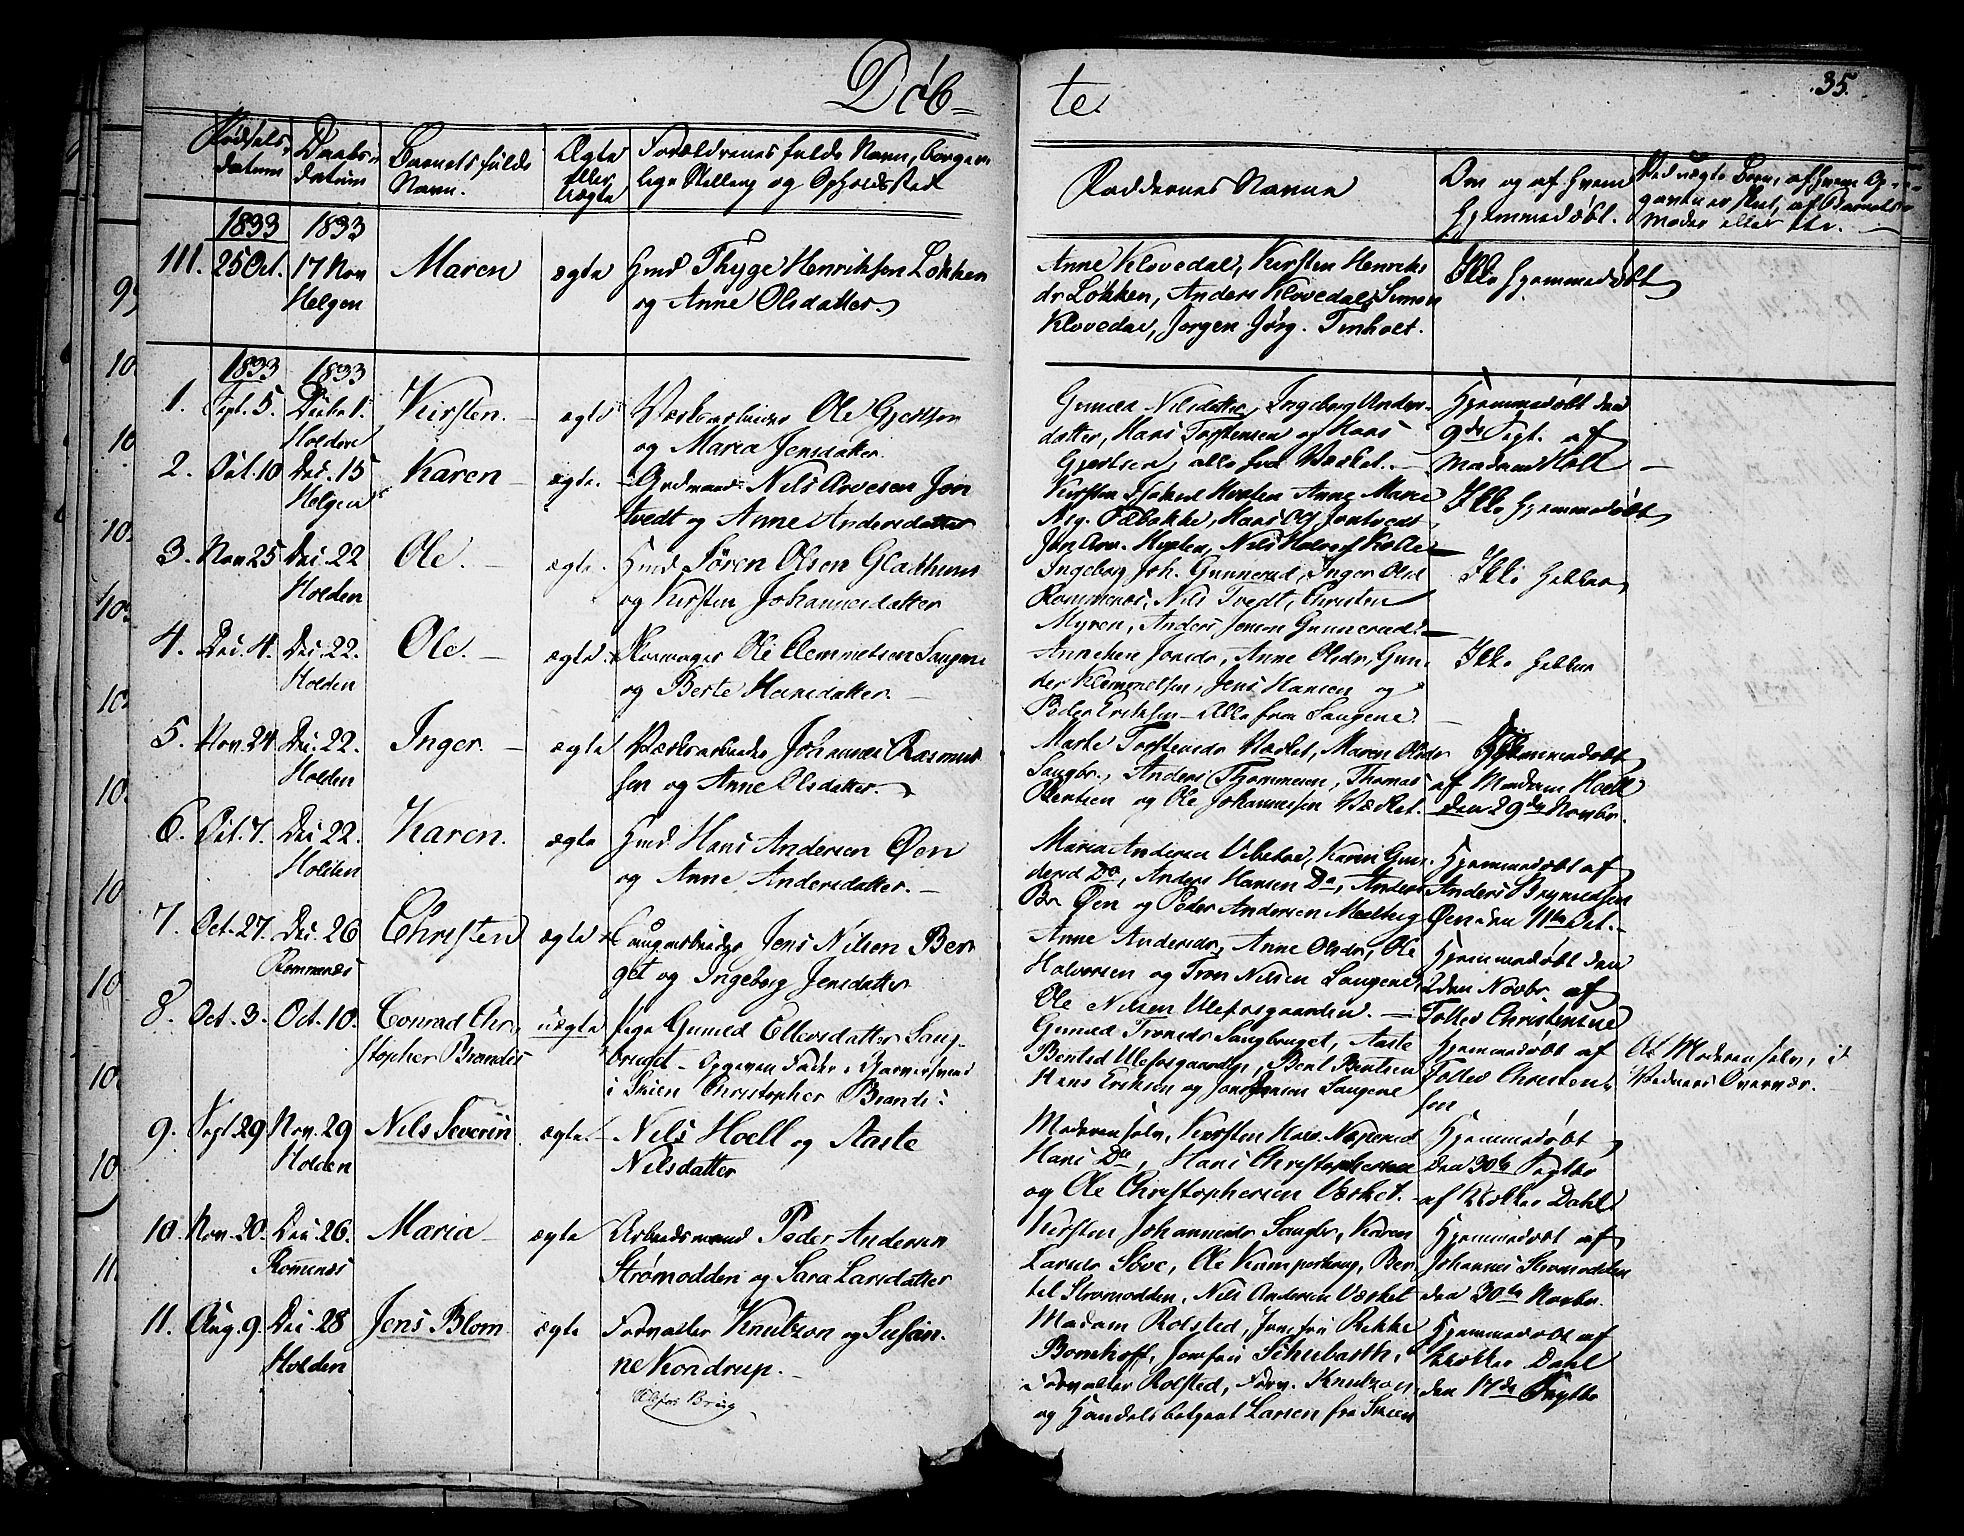 Døb-
te
35.
Fødsels-
datum
Daabs-
datum
Barnets fulde
Navn.
Ægte
eller
Uægte
Forældrenes fulde Navn, borger-
lige Stilling og Opholdssted
Faddernes Navne
Om og af hvem
hjemmedøbt.
Ved uægte Børn, af hvem Op-
gaven er skeet, af Barnets
Moder eller
1833
1833
111.
25 Oct.
17 Nov
Helgen
Maren
ægte
Gmd Thyge Henriksen Løkken
og Anne Olsdatter.
Anne Klovedal, Kirsten Henriks
dr Løkken, Anders Klovedal, Simen
Klovedal, Jørgen Jörg. Tinholt.
Ikke hjemmedøbt
1833
1833
1.
Sept. 5.
Decbr 1.
Holden
Kirsten.
ægte
Værksarbeider Ole Gjertsen
og Maria Jensdatter.
Gunild Nilsdatter, Ingeborg Anders-
datter, Hans Torstensen og Hans
Gjertsen, alle fra Værket.
Hjemmedøbt den
9de Sept. af
Madam Holl
2.
Oct. 10
Dec. 15
Helgen
Karen
ægte.
Grdmand Nils Arvesen Jon
tvedt og Anne Andersdatter
Kirsten Hvalen Anne Marie
Asg. Hans Ols Jontvedt,
Jon Arv. Hvalen, Nils Halvors Kolle
Ikke hjemmedøbt
3.
Nov 25
Dec. 22
Holden
Ole.
ægte.
Hmd Søren Olsen Gladhuus
og Kirsten Johannesdatter
Ingeborg Joh. Gunnerud, Inger Olsd
Rommenes, Nils Tvedt, Christen
Myren, Anders Jensen Gunnerud.
Ikke heller
4.
Dec. 4.
Dec. 22.
Holden
Ole.
ægte.
Ole Clemmetsen Saugene
og Berte Hansdatter.
Annichen Jonsdr, Anne Olsdr, Gun-
der Klemmetsen, Jens Hansen og
Peder Eriksen - Alle fra Saugene.
Ikke heller
5.
Nov. 24.
Dec. 22.
Holden
Inger.
ægte
Værksarbeider Johannes Rasmus
sen og Anne Olsdatter.
Marte Torstensdr Værket, Maren Olsdr
Saugbr., Anders Thommesen, Thomas
Bentsen og Ole Johannessen Værket.
Hjemmedøbt
af Madam Hoell
den 29de Novbr.
6.
Oct. 7.
Dec. 22.
Holden
Karen.
ægte
Gmd Hans Andersen Øen
og Anne Andersdatter.
Maria Andersd Vibetoe, Karen Gun-
dersd Do, Anders Hansen Do, Anders
Br Øen og Peder Andersen Melberg
Hjemmedøbt af
Anders Brynildsen
Øen den 11te Oct.
7.
Oct. 27.
Dec. 26
Romnæs
Christen
ægte
Saugarbeider Jens Nilsen Ber
get og Ingeborg Jensdatter
Anne Andersdr, Anne Olsdr, Ole
Halvorsen og Tron Nilsen Saugene,
Ole Nilsen Ulefosgaarden.
Hjemmedøbt den
2den Novbr. af
Tollev Christensen
8.
Oct. 3.
Oct. 10.
Conrad Chri
stopher Brandes
uægte
Pige Gunild Ellevsdatter Saug-
bruget - Opgiven Fader: Garversvend
i Skien Christopher Brandes
Gunild Tronsdr Saugbruget, Aaste
Bentsd Ulefosgaarden, Bent Bentsen
Hans Eriksen og Jon Jensen Saugene
Hjemmedøbt af
Tollev Christen-
sen
Af Moderen selv, i
Vidners Overvær.
9.
Sept 29
Nov. 29
Holden
Nils Severin
ægte.
Nils Hoell og Aaste
Nilsdatter
Moderen selv, Kirsten Hans Næserud
Hans Do, Hans Christophersen
og Ole Christophersen Værket.
Hjemmedøbt
den 30te Septbr
af Klokker Dahl
10.
Nov. 20.
Dec. 26.
Romnæs
Maria
ægte
Arbeidsmand Peder Andersen
Strømodden og Sara Larsdatter
Kirsten Johannesdr Saugbr, Karen
Larsdr Søve, Ole Kamperhaug, Ber
tel Strømodden, Nils Andersen Værket
Hjemmedøbt af
Johannes Strømodden
den 30te Novbr.
11.
Aug. 9.
Dec. 28
Holden
Jens Blom
ægte
Forvalter Knutzon og Susan-
ne Kondrup.
Ulefos Brug
Madam Rolsted, Jomfru Rikke
Bomhoff, Jomfru Schubarth,
Forvalter Rolsted, Forv. Knutzon
og Handelsbetjent Larsen fra Skien
Hjemmedøbt af
Klokker Dahl
den 17de Septbr